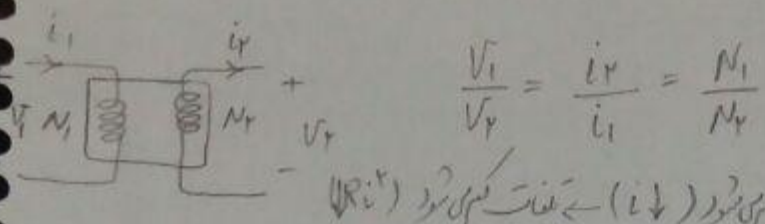 i₁ i₂
V₁ N₁ N₂ + V₂ −
V₁/V₂ = i₂/i₁ = N₁/N₂
می‌شود (i↓) ← تلفات کم می‌شود (↓Ri²)